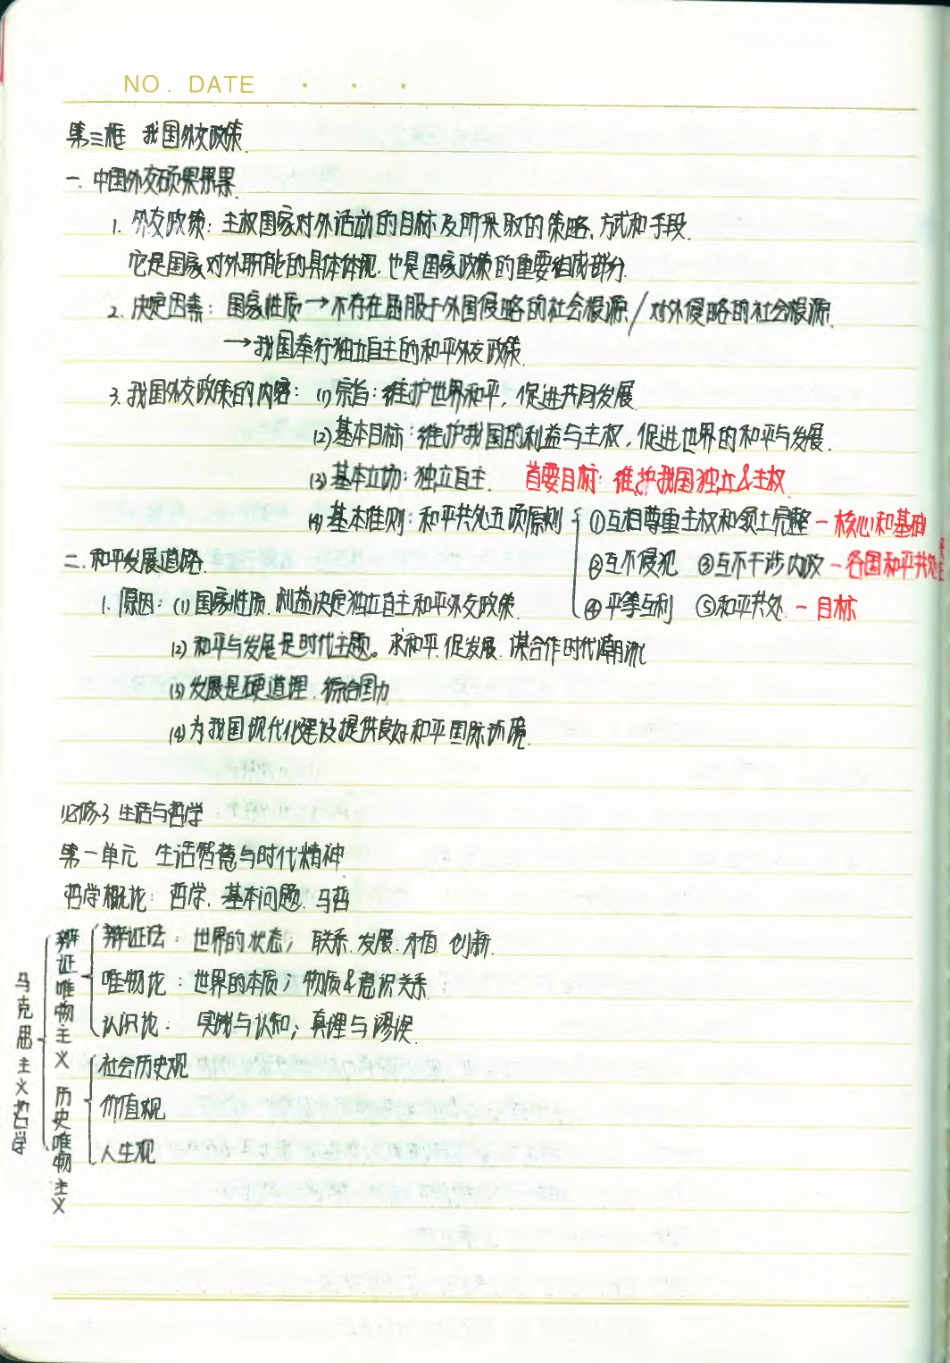 NO. DATE
第三框 我国外交政策
一. 中国外交硕果累累
1. 外交政策: 主权国家对外活动的目标及所采取的策略、方式和手段.
它是国家对外职能的具体体现. 也是国家政策的重要组成部分.
2. 决定因素: 国家性质→不存在屈服于外国侵略的社会根源/对外侵略的社会根源.
→我国奉行独立自主的和平外交政策.
3. 我国外交政策的内容: (1)宗旨: 维护世界和平, 促进共同发展
(2)基本目标: 维护我国的利益与主权, 促进世界的和平与发展.
(3)基本立场: 独立自主. 首要目标: 维护我国独立&主权
(4)基本准则: 和平共处五项原则 ①互相尊重主权和领土完整－核心和基础
二. 和平发展道路. ②互不侵犯 ③互不干涉内政－各国和平共处
1. 原因: (1)国家性质. 利益决定独立自主和平外交政策. ④平等互利 ⑤和平共处.－目标
(2)和平与发展是时代主题。求和平. 促发展. 谋合作时代潮流
(3)发展是硬道理. 综合国力
(4)为我国现代化建设提供良好和平国际环境.
必修3 生活与哲学
第一单元 生活智慧与时代精神
哲学概论: 哲学. 基本问题. 马哲
马克思主义哲学
辩证唯物主义
辩证法: 世界的状态; 联系. 发展. 矛盾 创新.
唯物论: 世界的本质; 物质&意识关系.
认识论: 实践与认知; 真理与谬误.
历史唯物主义
社会历史观
价值观
人生观